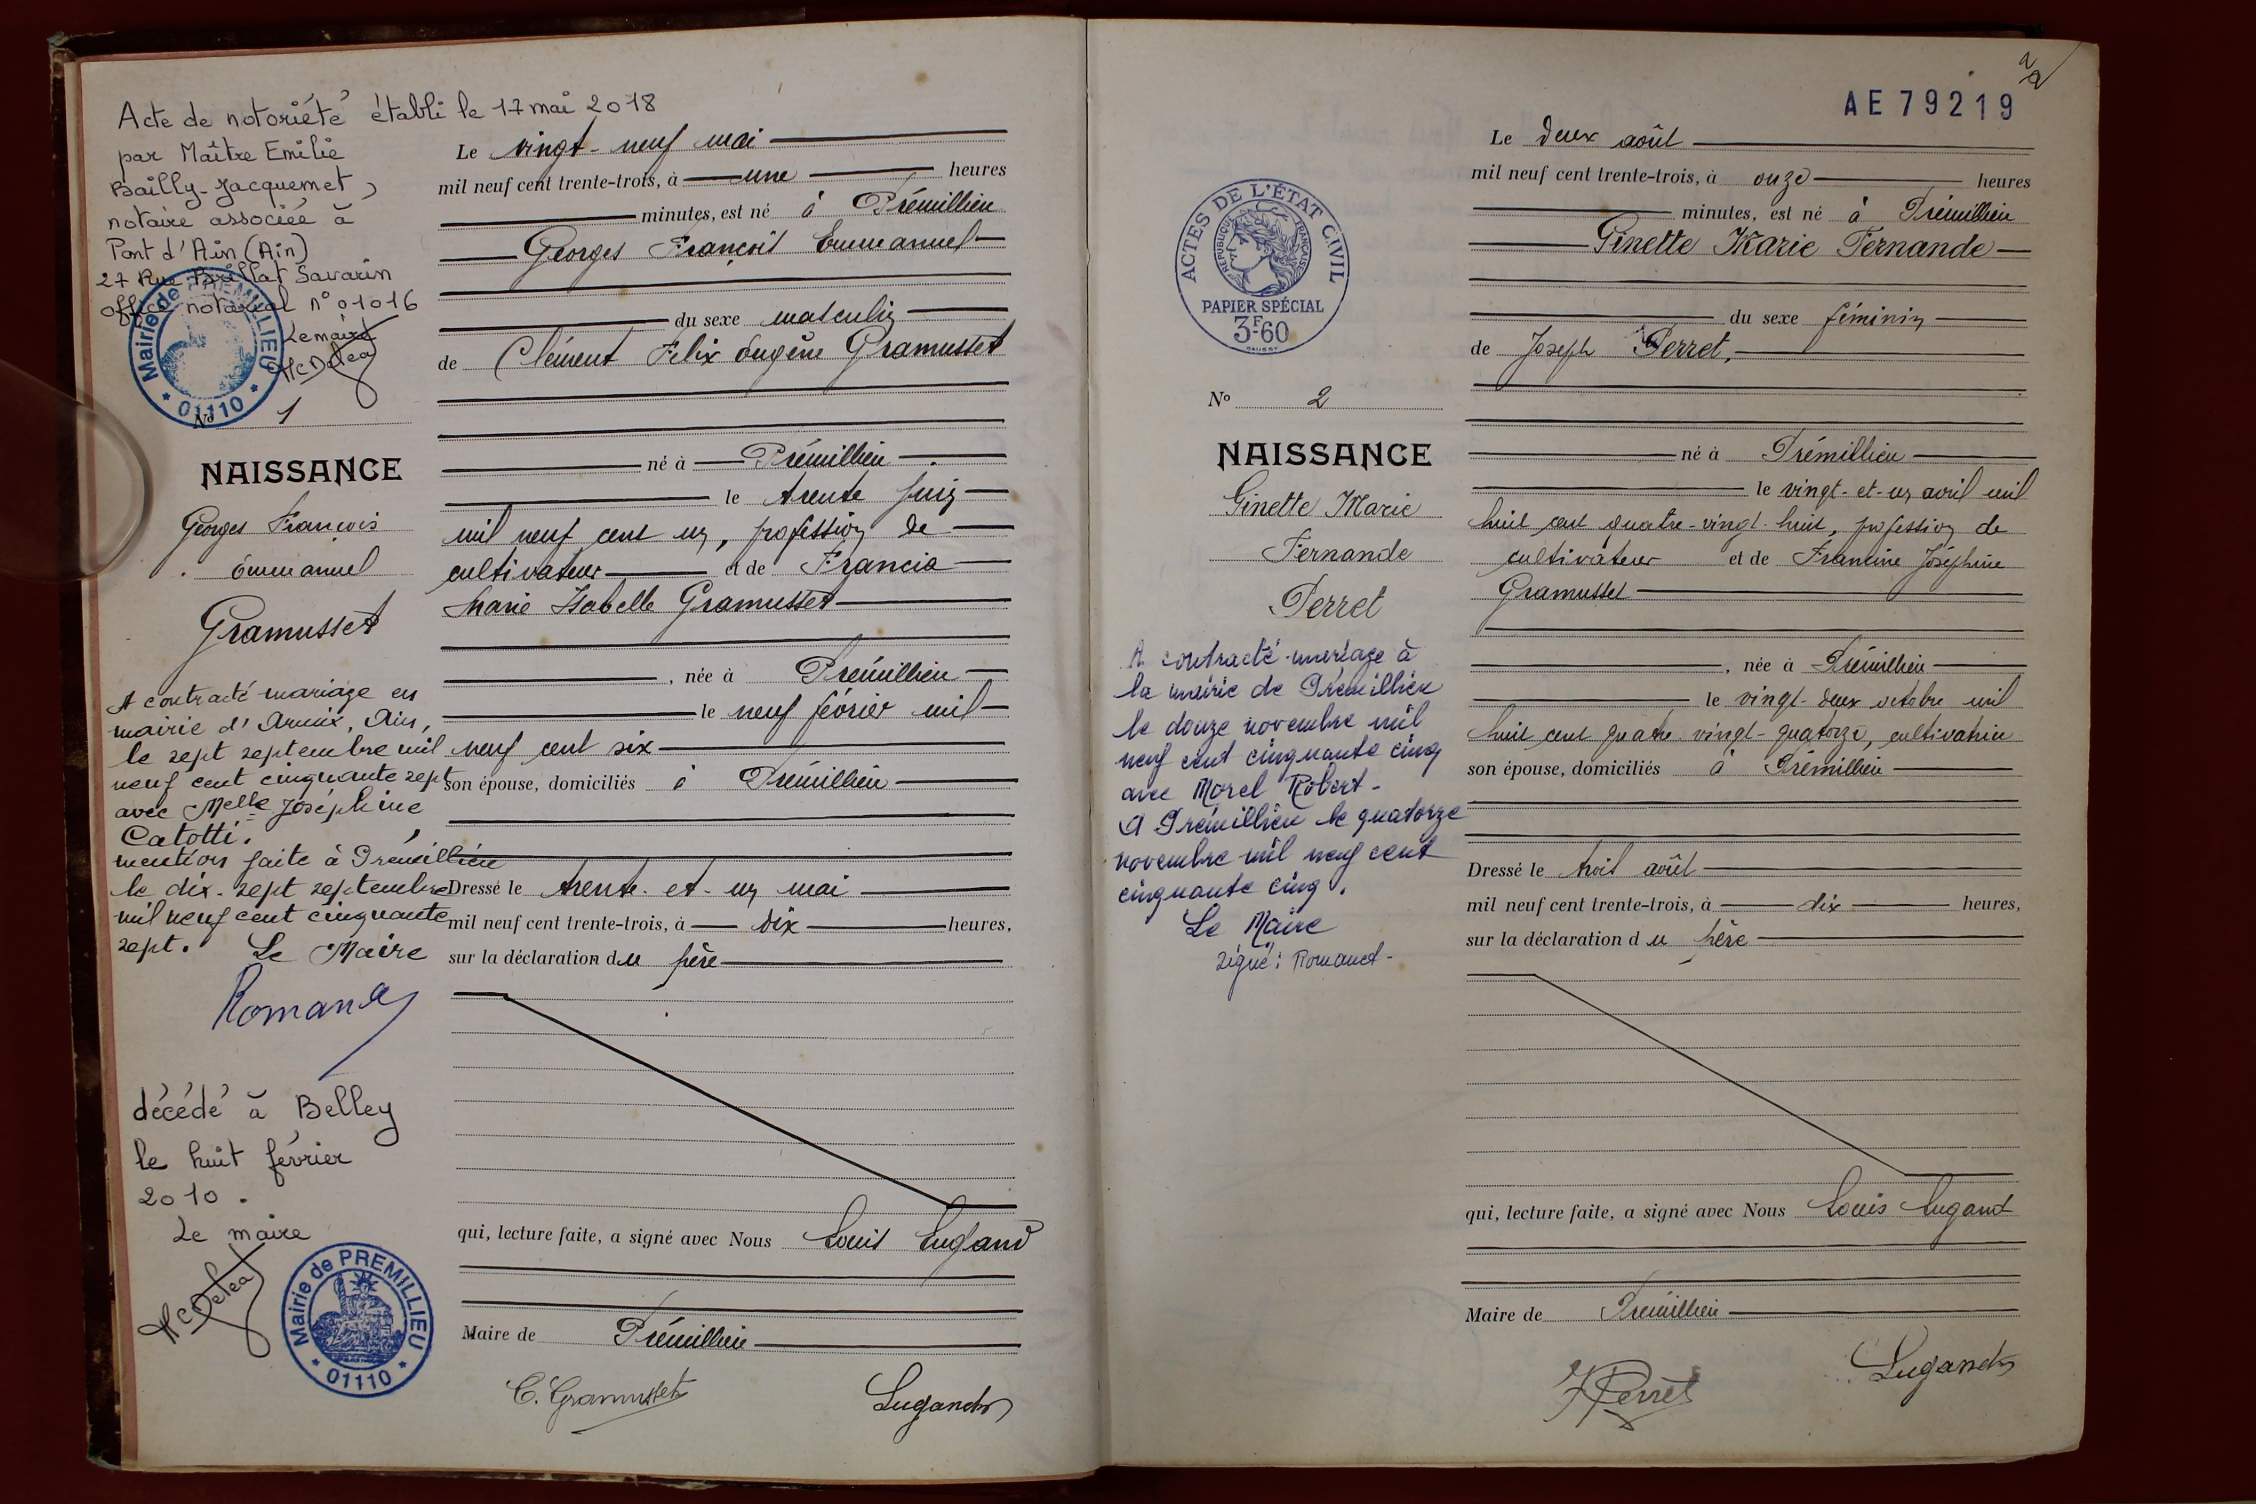 Acte de notoriété établi le 17 mai 2018
par Maître Emilie
Bailly-Jacquemet,
notaire associée à
Pont d'Ain (Ain)
27 Rue Brillat Savarin
office notarial n° 01016
Le maire
Mairie de PREMILLIEU
* 01110 *
No 1
NAISSANCE
Georges François
Emmanuel
Gramusset
A contracté mariage en
mairie d'Armix, Ain,
le sept septembre mil
neuf cent cinquante sept
avec Melle Joséphine
Catotti.
mention faite à Prémillieu
le dix-sept septembre
mil neuf cent cinquante
sept. Le Maire
Romanet
décédé à Belley
le huit février
2010.
Le maire
Mairie de PREMILLIEU
* 01110 *
Le vingt-neuf mai
mil neuf cent trente-trois, à une heures
minutes, est né à Prémillieu
Georges François Emmanuel
du sexe masculin
de Clément Felix Eugène Gramusset
né à Prémillieu
le trente juin
mil neuf cent un, profession de
cultivateur et de Francia
Marie Isabelle Gramusset
, née à Prémillieu
le neuf février mil
neuf cent six
son épouse, domiciliés à Prémillieu
Dressé le trente-et-un mai
mil neuf cent trente-trois, à dix heures,
sur la déclaration du père
qui, lecture faite, a signé avec Nous Louis Lugand
Maire de Prémillieu
C. Gramusset Lugand
2
AE79219
ACTES DE L'ÉTAT CIVIL
RÉPUBLIQUE FRANÇAISE
PAPIER SPÉCIAL
3F60
No 2
NAISSANCE
Ginette Marie
Fernande
Perret
A contracté mariage à
la mairie de Prémillieu
le douze novembre mil
neuf cent cinquante cinq
avec Morel Robert-
A Prémillieu le quatorze
novembre mil neuf cent
cinquante cinq.
Le Maire
signé: Romanet-
Le deux août
mil neuf cent trente-trois, à onze heures
minutes, est né à Prémillieu
Ginette Marie Fernande
du sexe féminin
de Joseph Perret,
né à Prémillieu
le vingt-et-un avril mil
huit cent quatre-vingt-huit, profession de
cultivateur et de Francine Joséphine
Gramusset
, née à Prémillieu
le vingt-deux octobre mil
huit cent quatre vingt-quatorze, cultivatrice
son épouse, domiciliés à Prémillieu
Dressé le trois août
mil neuf cent trente-trois, à dix heures,
sur la déclaration du père
qui, lecture faite, a signé avec Nous Louis Lugand
Maire de Prémillieu
J Perret Lugand